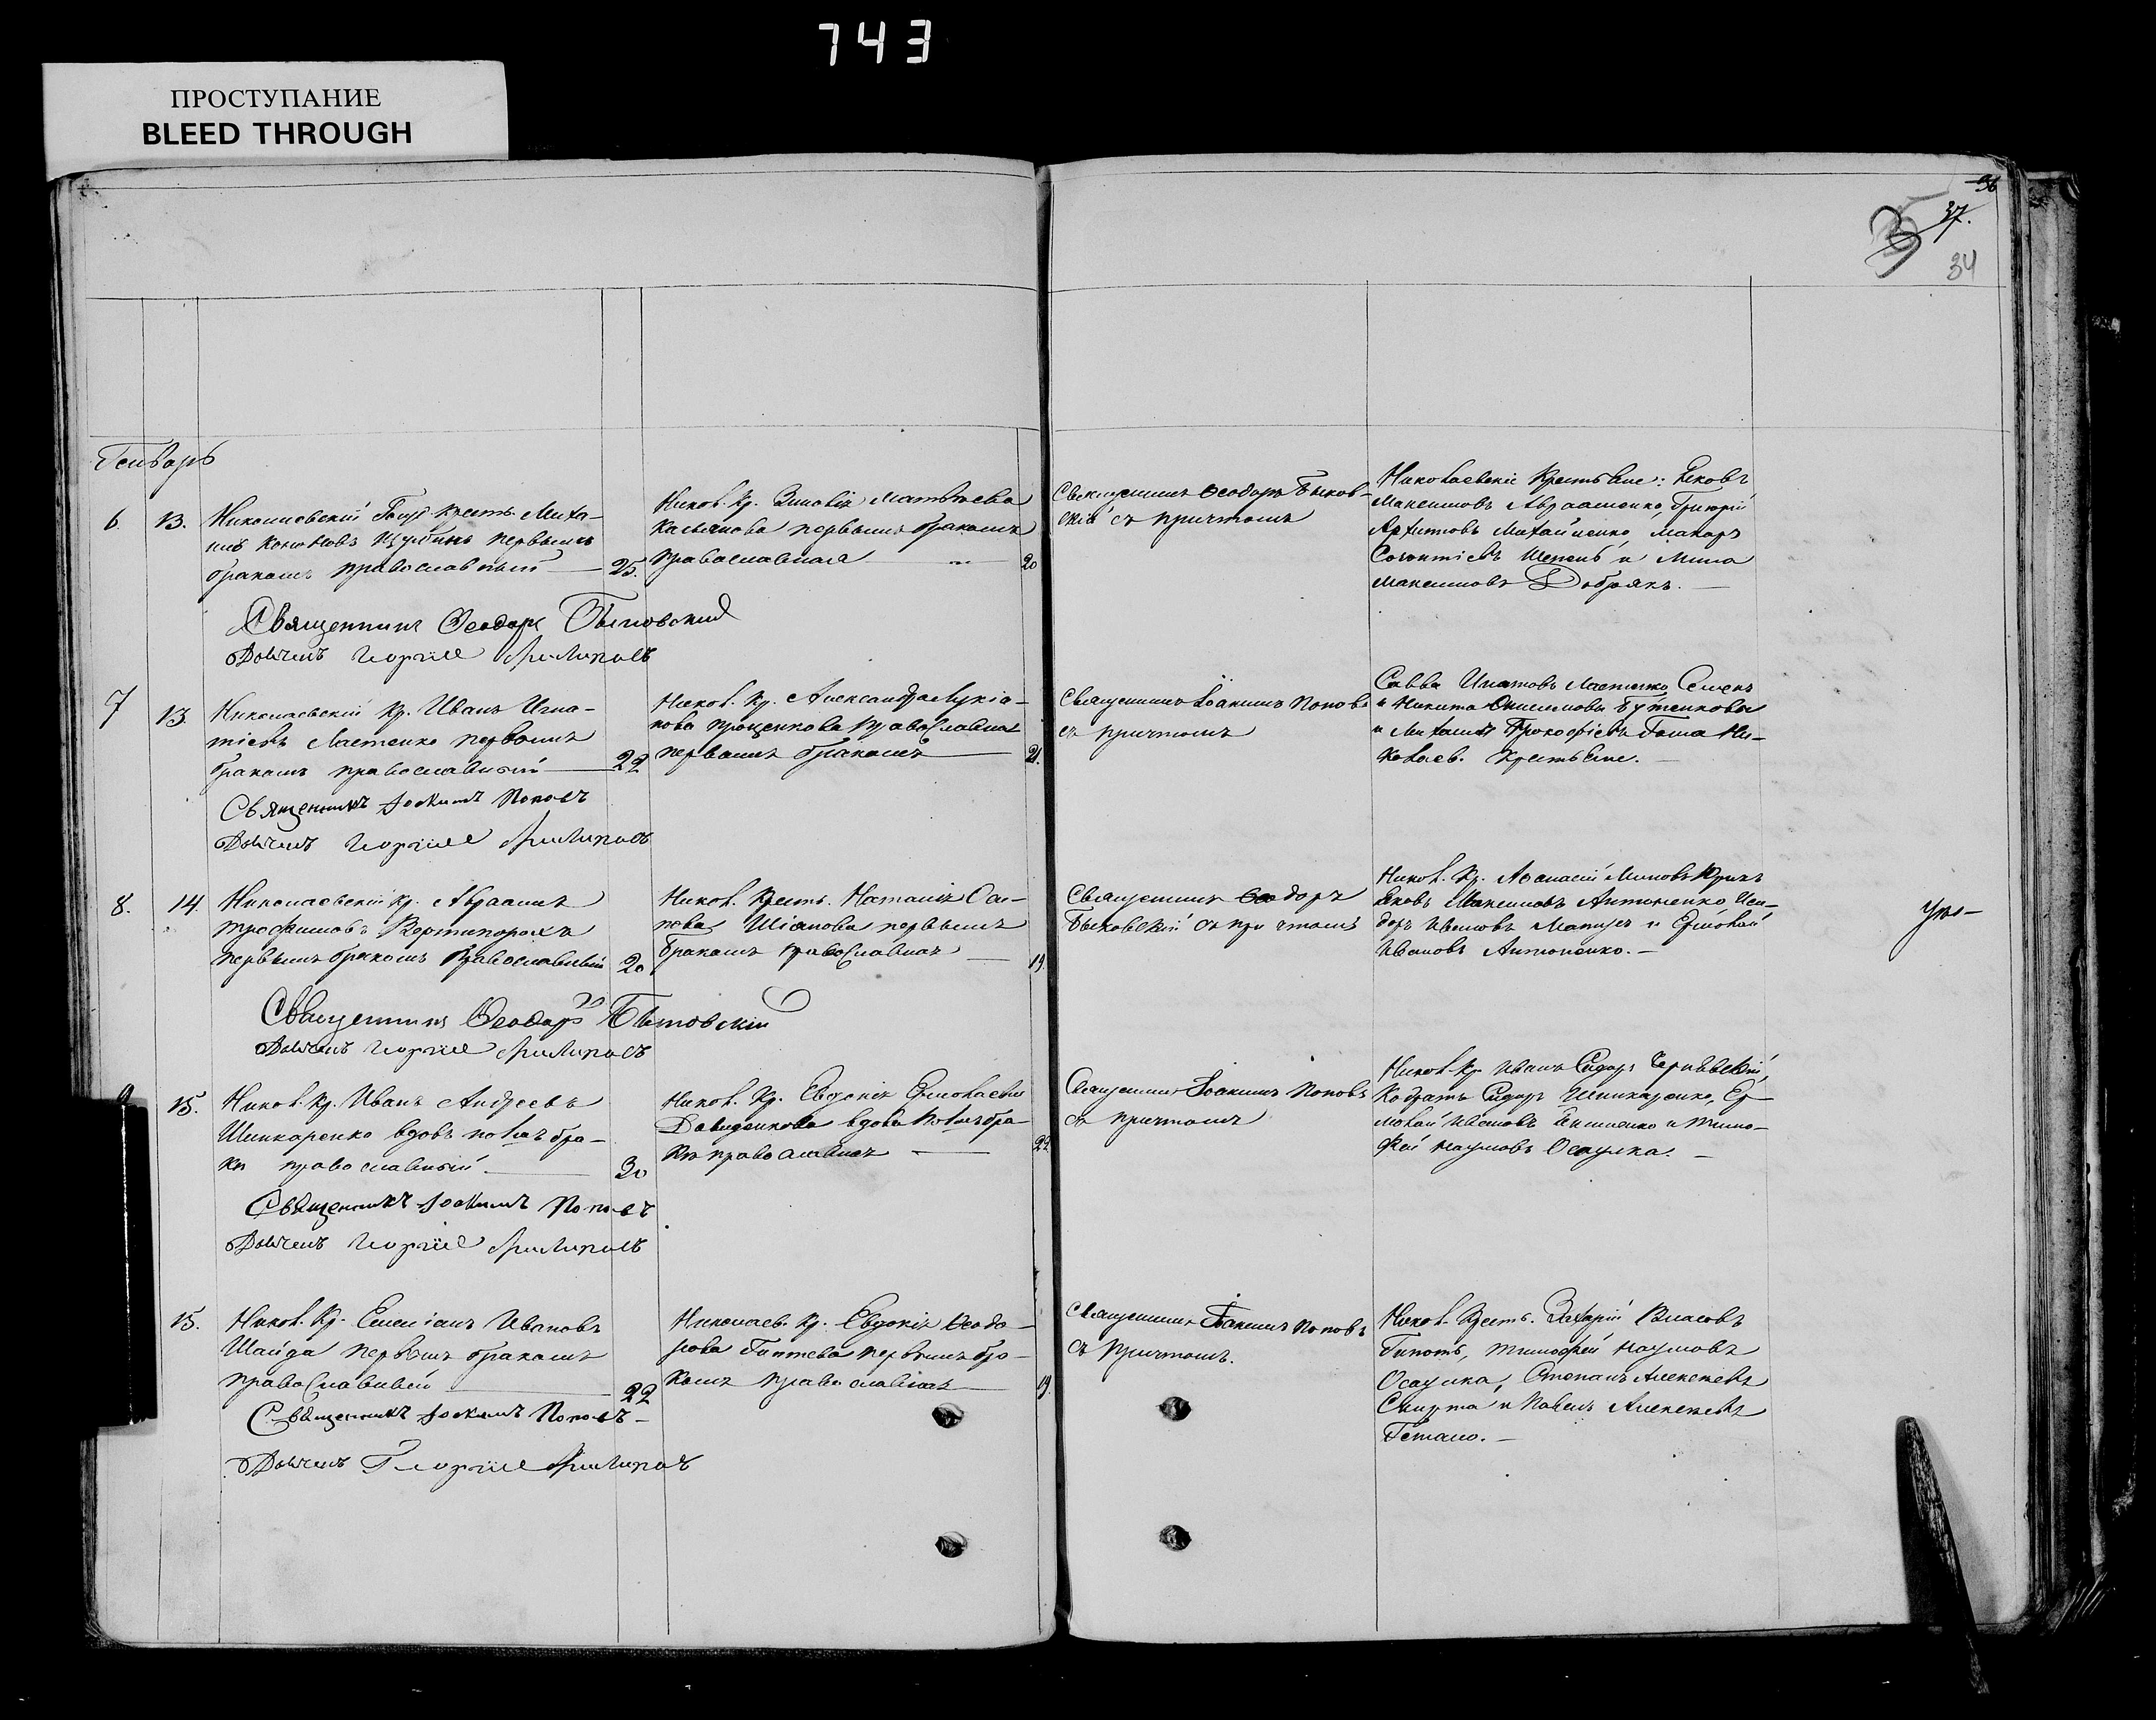 743
ПРОСТУПАНИЕ
BLEED THROUGH
36
37.
35
34
Генварь
6. 13.
Николаевскій Госуд. крест. Миха-
илъ первымъ
бракомъ православный 25.
Никол. Кр. Зиновія Матвѣева
Касьянова первымъ бракомъ
православная 20
Священникъ Ѳеодоръ Быков-
скій съ причтомъ
Николаевскіе Крестьяне: Яковъ
Максимовъ Авраменко, Григорій
Архиповъ Михайленко, Макаръ
Шепель и Мина
Максимовъ Добрякъ.
Священникъ Ѳеодоръ Быковский
Дьячекъ Георгіе
7 13.
Николаевскій Кр. Иванъ Игна-
тіевъ Ластенко первымъ
бракомъ православный 22
Никол. Кр. Александра Лукіа-
нова Проценкова Православная
первымъ бракомъ 21.
Священникъ Іоакимъ Поповъ
съ причтомъ
Савва Ластенко, Семенъ
и Никита Онисимовы Бутенковы
и Михаилъ Прокофіевъ Гоша Ни-
колаев. Крестьяне.
Священникъ Іоакимъ Поповъ
Дьячекъ Георгіе
8. 14.
Николаевскій Кр. Авраамъ
Трофимовъ Вертипорохъ
первымъ бракомъ Православный 20
Никол. Крест. Наталія Оси-
пова Шіанова первымъ
бракомъ православная 19.
Священникъ Ѳеодоръ
Быковскій съ причтомъ
Никол. Кр. Аѳанасій Миновъ
Яковъ Максимовъ Антоненко, Иси-
доръ Ивановъ и Ермолай
Ивановъ Антоненко.
Священникъ Ѳеодоръ Быковскій
Дьячекъ Георгіе
9 15.
Никол. Кр. Иванъ Андреевъ
Шинкаренко вдовъ по 1мъ бра-
кѣ православный. 30
Никол. Кр. Евдокія Ермолаева
Давиденкова вдова по 1мъ бра-
кѣ православная 22
Священникъ Іоакимъ Поповъ
съ причтомъ
Никол. Кр. Иванъ Сидор.
Кодратъ Сидор. Шинкаренко, Ер-
молай Ивановъ и Тимо-
фей Наумовъ Осаулка.
Священникъ Іоакимъ Поповъ
Дьячекъ Георгіе
15.
Никол. Кр. Емеліанъ Ивановъ
Шайда первымъ бракомъ
православный 22
Николаев. Кр. Евдокія Ѳеодо-
рова первымъ бра-
комъ православная 19.
Священникъ Іоакимъ Поповъ
съ Причтомъ.
Никол. Крест. Захарій Власовъ
Тимофей Наумовъ
Осаулка, Степанъ Алексеевъ
Скирта и Павелъ Алексеевъ
Гетало.
Священникъ Іоакимъ Поповъ
Дьячекъ Георгіе